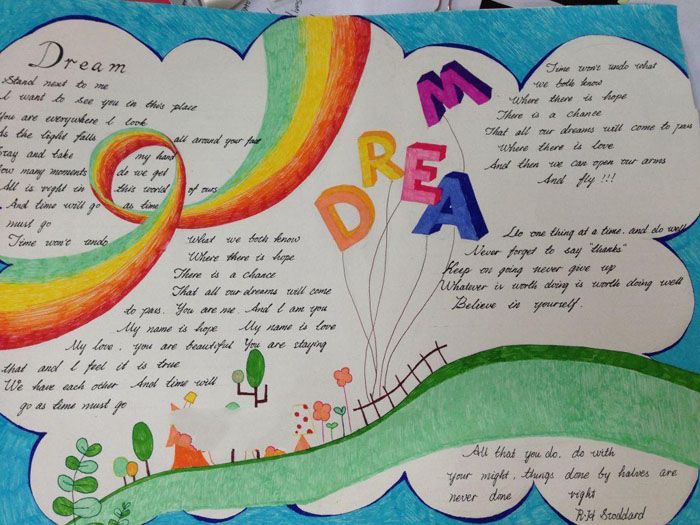 Dream
Stand next to me
I want to see you in this place
You are everywhere I look
As the light falls all around your face
and take my hand
How many moments do we get
All is right in this world of ours
And time will go as time
must go
Time won't undo What we both know
Where there is hope
There is a chance
That all our dreams will come
to pass. You are me. And I am you
My name is hope My name is love
My love, you are beautiful You are staying
that and I feel it is true
We have each other And time will
go as time must go
DREAM
Time won't undo what
we both know
Where there is hope
There is a chance
That all our dreams will come to pass
Where there is love
And then we can open our arms
And fly !!!
one thing at a time. and do well
Never forget to say "thanks"
Keep on going never give up
Whatever is worth doing is worth doing well
Believe in yourself.
All that you do, do with
your might, things done by halves are
never done right
Stoddard